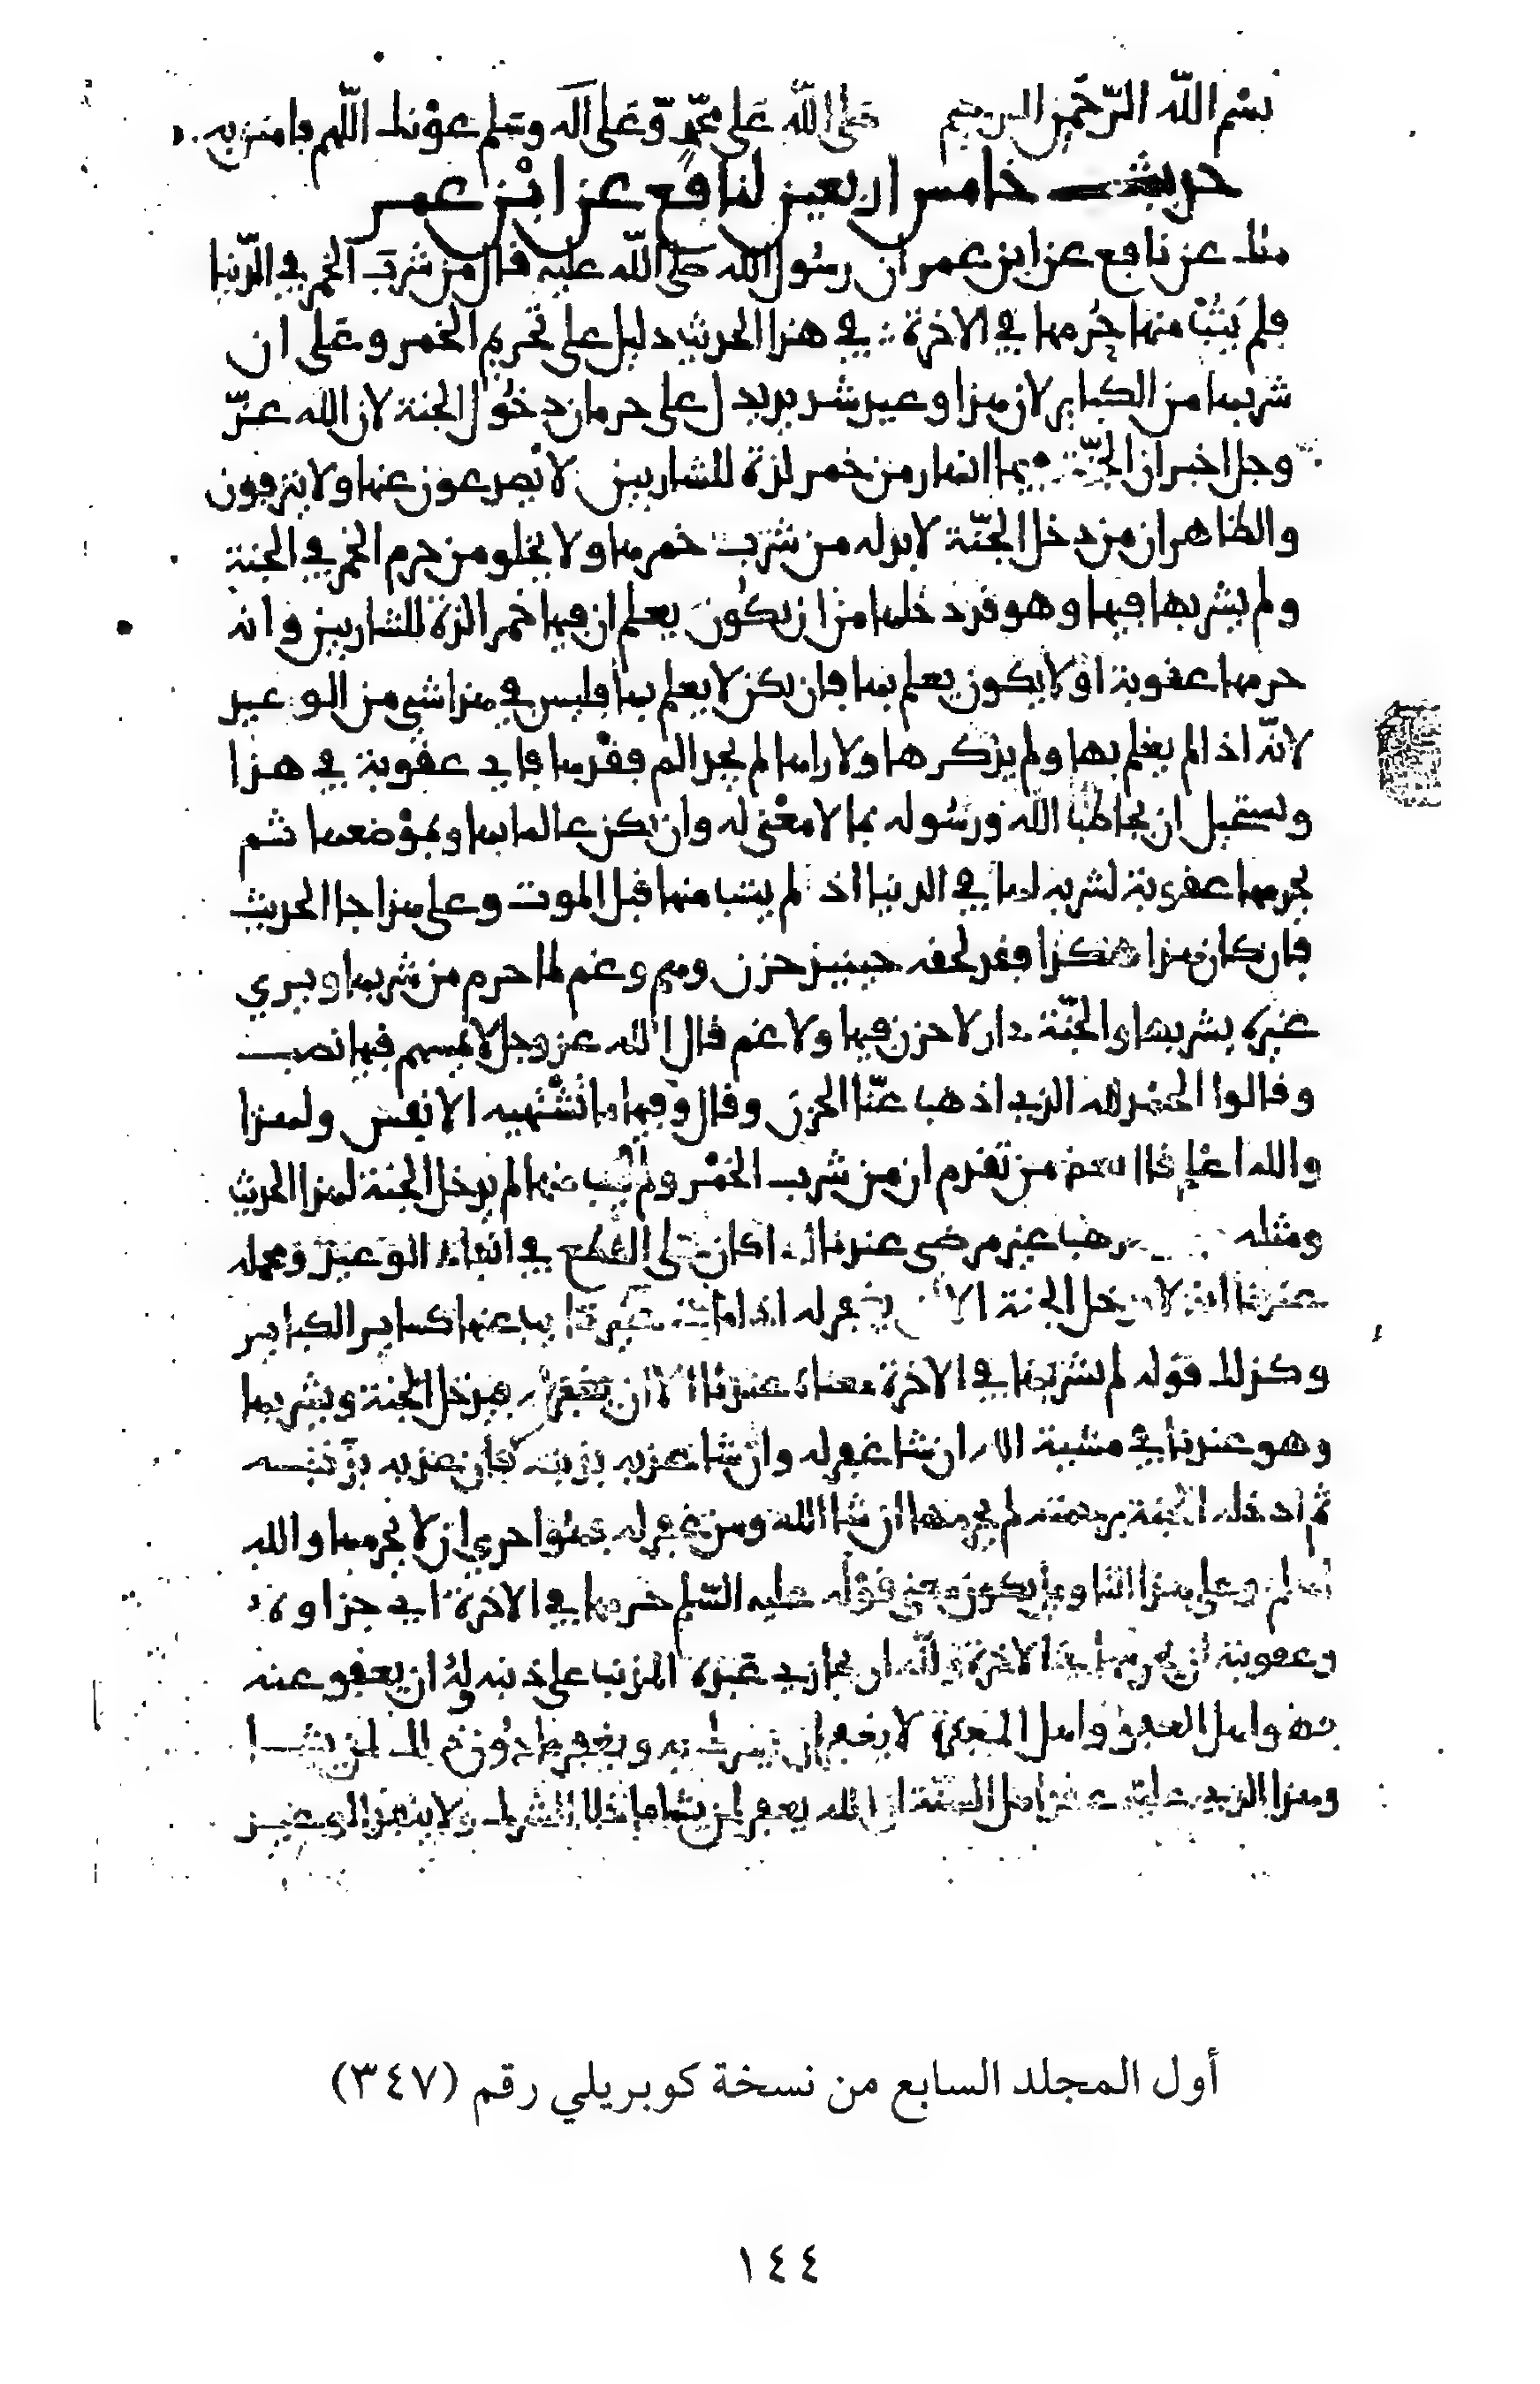 بسم الله الرحمن الرحيم صلى الله على محمد وعلى آله وسلم عونك اللهم يا من به
حديث خامس اربعين لنافع عن ابن عمر
ملك عن نافع عن ابن عمر ان رسول الله صلى الله عليه قال من شرب الخمر في الدنيا
فلم يتب منها حرمها في الاخرة في هذا الحديث دليل على تحريم الخمر وعلى ان
شربها من الكباير لان هذا وعيد شديد يدل على حرمان دخول الجنة لان الله عز
وجل اخبر ان الجنة فيها انهار من خمر لذة للشاربين لا يصدعون عنها ولا ينزفون
والظاهر ان من دخل الجنة لا بد له من شرب خمرها ولا يخلو من حرم الخمر في الجنة
ولم يشربها فيها وهو قد دخلها من ان يكون يعلم ان فيها خمرا لذة للشاربين وانه
حرمها عقوبة او لا يكون يعلم بها فان يكن لا يعلم بها فليس في هذا شي من الوعيد
لانه اذا لم يعلم بها ولم يذكرها ولا راها لم يجد الم فقدها فاي عقوبة في هذا
ويستحيل ان يخاطب الله ورسوله بما لا معنى له وان يكن عالما بها وبموضعها ثم
يحرمها عقوبة لشربه لها في الدنيا اذ لم يتب منها قبل الموت وعلى هذا جا الحديث
فان كان هذا هكذا فقد لحقه حينيذ حزن وهم وغم لما حرم من شربها ويرى
غيره يشربها والجنة دار لا حزن فيها ولا غم قال الله عز وجل لا يمسهم فيها نصب
وقالوا الحمد لله الذي اذهب عنا الحزن وقال وفيها ما تشتهيه الانفس ولهذا
والله اعلم قال بعض من تقدم ان من شرب الخمر ولم يتب منها لم يدخل الجنة لهذا الحديث
ومثله غير مرضي عندنا اذا كان على القطع في انفاذ الوعيد ومحمله
عندنا انه لا يدخل الجنة الا ان يغفر له اذا مات غير تايب عنها كساير الكباير
وكذلك قوله لم يشربها في الاخرة معناه عندنا الا ان يغفر له فيدخل الجنة ويشربها
وهو عندنا في مشية الله ان شا غفر له وان شا عذبه بذنبه فان عذبه بذنبه
ثم ادخله الجنة برحمته لم يحرمها ان شا الله ومن غفر له فهو احرى ان لا يحرمها والله
اعلم وعلى هذا التاويل يكون معنى قوله عليه السلم حرمها في الاخرة اي جزاوه
وعقوبته ان يحرمها في الاخرة ولله ان يجازي عبده المذنب على ذنبه وله ان يعفو عنه
فهو اهل العفو واهل المغفرة لا يغفر ان يشرك به ويغفر ما دون ذلك لمن يشا
وهذا الذي عليه عقد اهل السنة ان الله يغفر لمن يشا ما خلا الشرك ولا ينفذ الوعيد
أول المجلد السابع من نسخة كوبريلي رقم (٣٤٧)
١٤٤